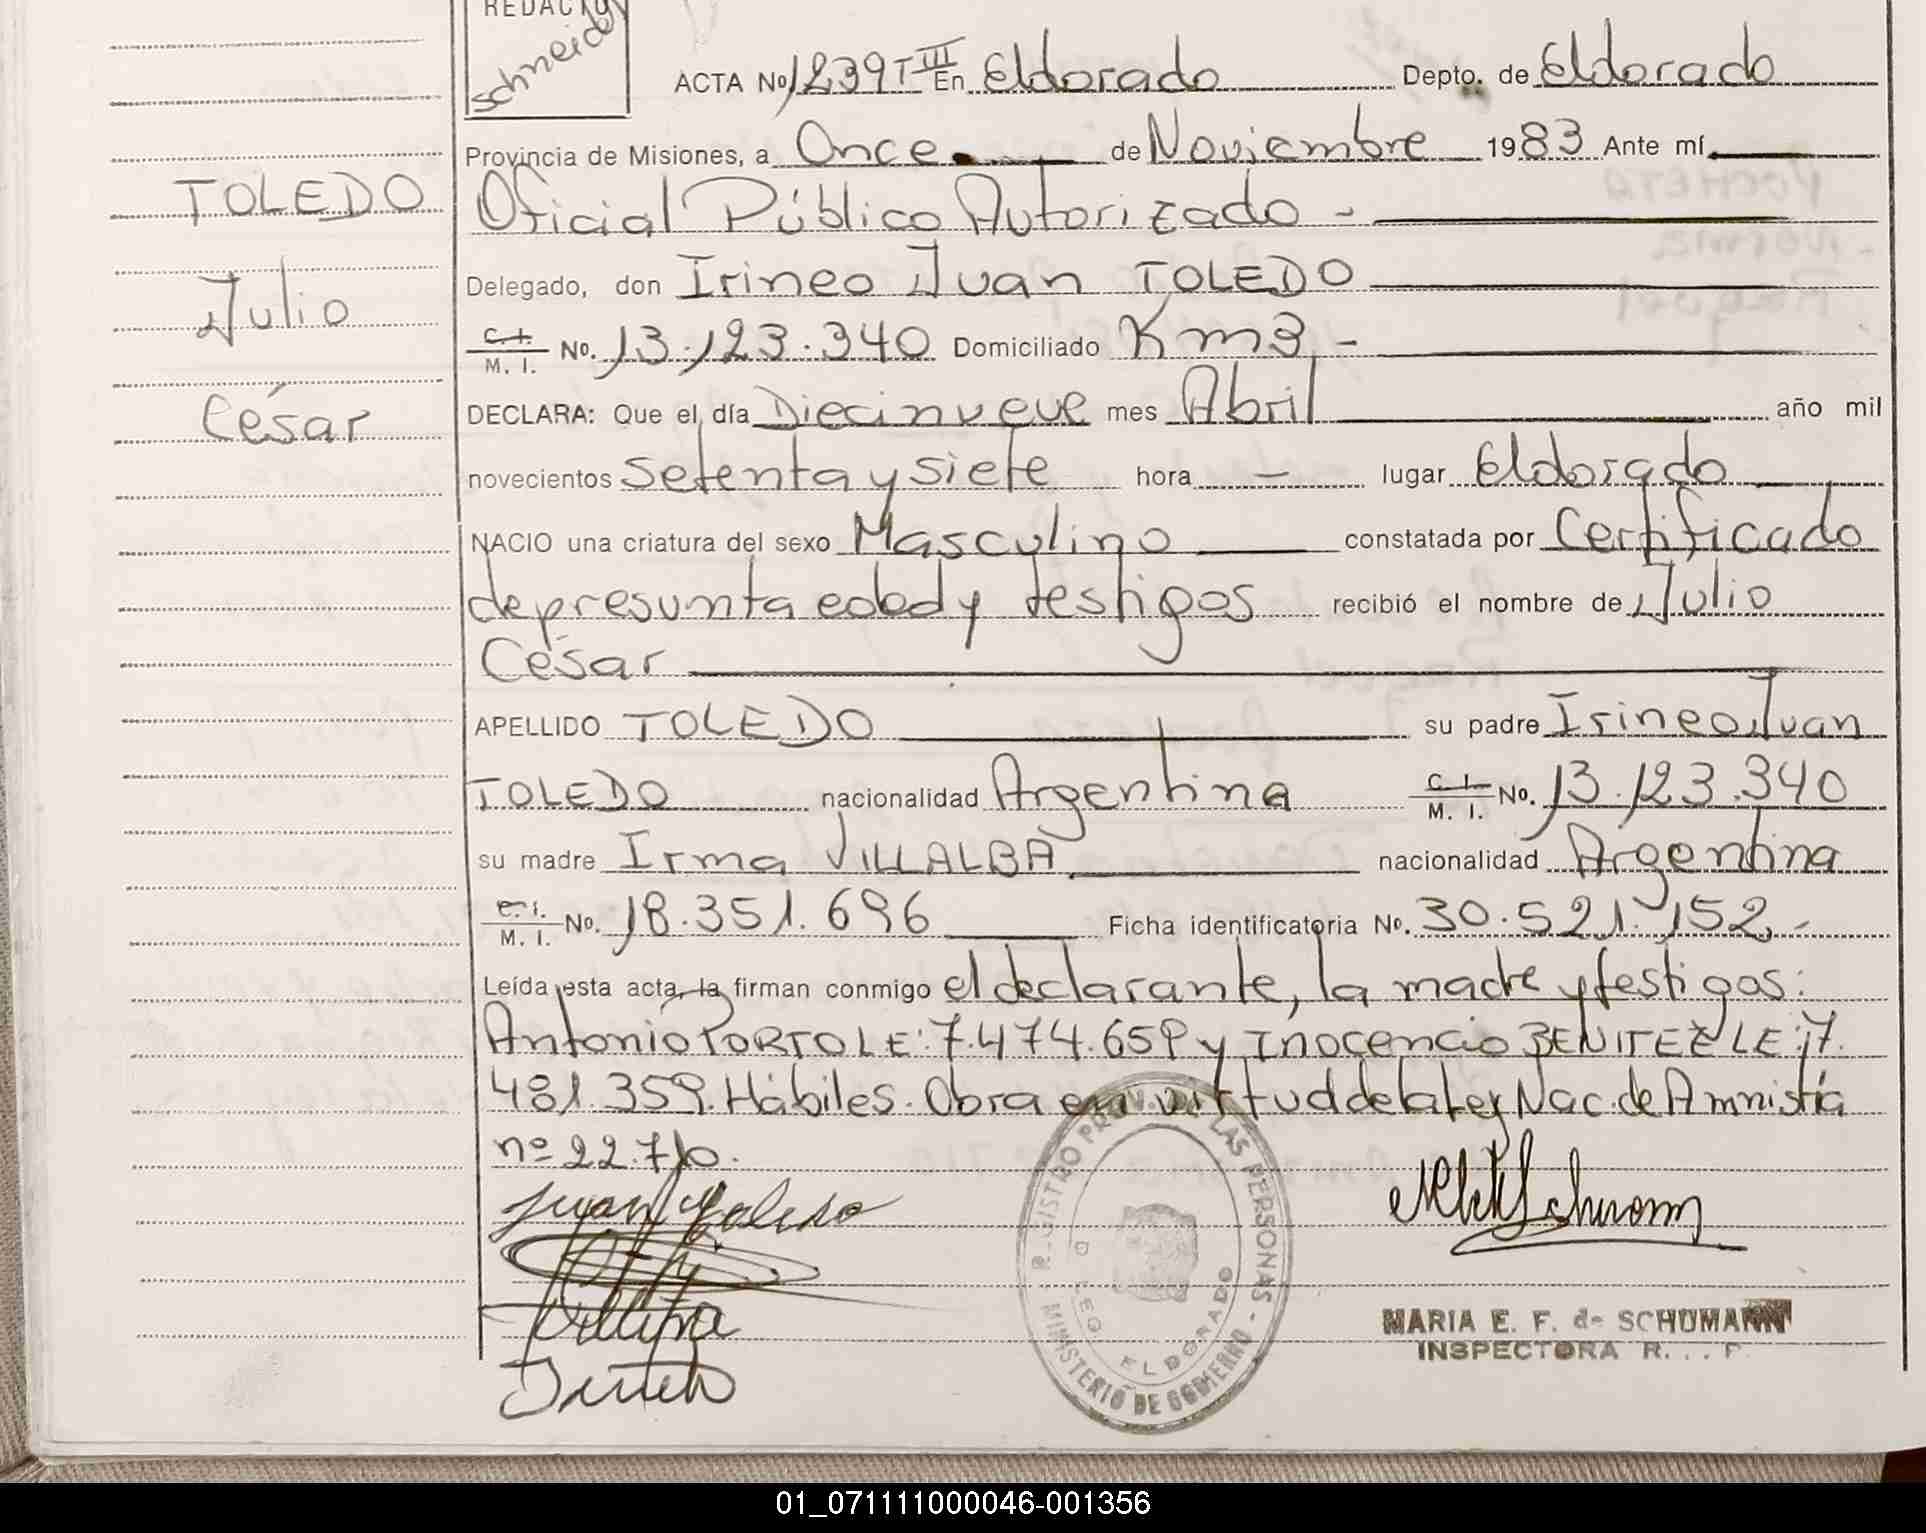 REDACTO
Schneider
ACTA No 1239 T III En Eldorado Depto. de Eldorado
Provincia de Misiones, a Once de Noviembre 1983 Ante mí
TOLEDO Oficial Público Autorizado -
Delegado, don Irineo Juan TOLEDO
Julio
C. I. / M. I. No. 13.123.340 Domiciliado Km 3 -
DECLARA: Que el día Diecinueve mes Abril año mil
César
novecientos setenta y siete hora - lugar Eldorado
NACIO una criatura del sexo Masculino constatada por Certificado
de presunta edad y testigos recibió el nombre de Julio
César
APELLIDO TOLEDO su padre Irineo Juan
TOLEDO nacionalidad Argentina C. I. / M. I. No. 13.123.340
su madre Irma VILLALBA nacionalidad Argentina
C. I. / M. I. No. 18.351.696 Ficha identificatoria No. 30.521.152, -
Leída esta acta, la firman conmigo el declarante, la madre y testigos:
Antonio PORTO LE: 7.474.659 y Inocencio BENITEZ LE: 7.
481.359. Hábiles. Obra en virtud de la Ley Nac. de Amnistía
nº 22.710.
Juan Toledo
REGISTRO PROV. DE LAS PERSONAS - MINISTERIO DE GOBIERNO -
DELEG. ELDORADO
MARIA E. F. de SCHUMANN
INSPECTORA R. . . P.
01_071111000046-001356